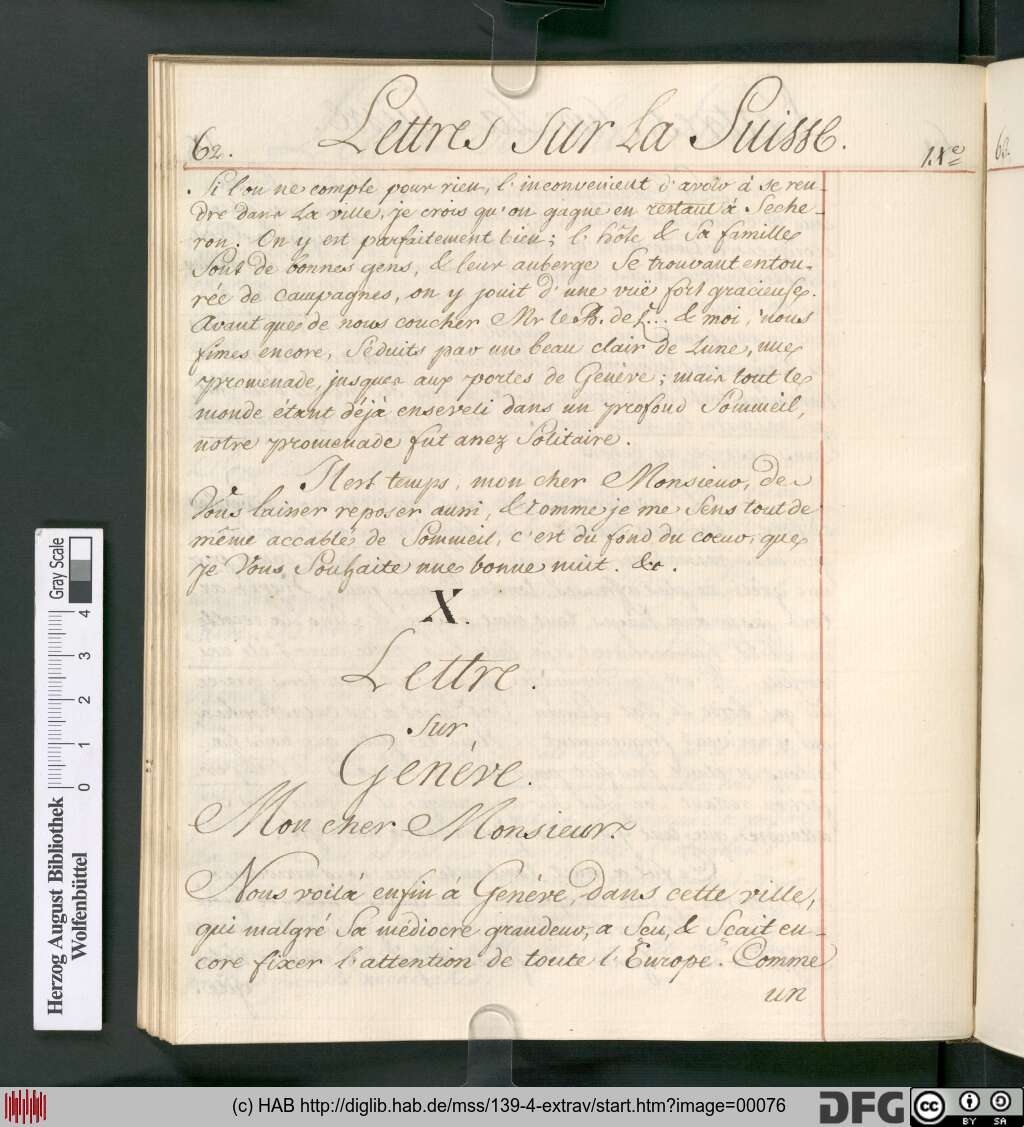 62. Lettres sur La Suisse. IX.e
Si l'on ne compte pour rien, l'inconvenient d'avoir à se ren-
dre dans La ville, je crois qu'on gagne en restant à Seche-
ron. On y est parfaitement bien; l'hôte & Sa famille
Sont de bonnes gens, & leur auberge Se trouvant entou-
rée de campagnes, on y jouit d'une vuë fort gracieuse.
Avant que de nous coucher Mr le B. de L... & moi, nous
fimes encore, Séduits par un beau clair de Lune, une
promenade, jusques aux portes de Genève; mais tout le
monde étant déjà enseveli dans un profond Sommeil,
notre promenade fut assez Solitaire.
Il est temps, mon cher Monsieur, de
Vous laisser reposer aussi, & comme je me Sens tout de
même accablé de Sommeil, c'est du fond du coeur, que
je Vous Souhaite une bonne nuit. &c.
X.
Lettre.
sur
Genève.
Mon cher Monsieur.
Nous voilà enfin à Genève, dans cette ville,
qui malgré Sa médiocre grandeur, a Seu, & Scait en-
core fixer l'attention de toute l'Europe. Comme
un
63
Herzog August Bibliothek
Wolfenbüttel
0 1 2 3 4
Gray Scale
(c) HAB http://diglib.hab.de/mss/139-4-extrav/start.htm?image=00076
DFG
cc BY SA